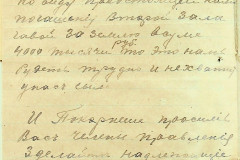 по виду предстоящей нам
погашений Второй Зала
говой За Землю В сумме
руб.
4000 тысячи то это нам
будет трудно и не хватит
у нас сил
И Покорнеше просим
Вас Члены Правления
Зделайте надлежащее